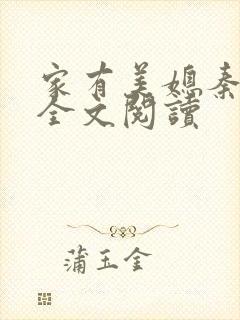 家有美媳秦
全文閱讀
蒲玉金